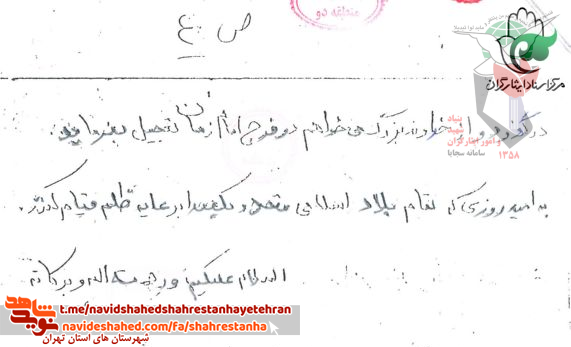 منطقه دو
ص ع
مرکز اسناد ایثارگران
بنیاد
شهید
و امور ایثارگران
۱۳۵۸
سامانه سجایا
درگذرد و از خداوند بزرگ می خواهم در فرج امام زمان تعجیل بفرماید.
به امید روزی که تمام بلاد اسلامی متحد و یکصدا بر علیه ظلم قیام کنند.
السلام علیکم و رحمته اله و برکاته
نوید شاهد
t.me/navidshahedshahrestanhayetehran
navideshahed.com/fa/shahrestanha
شهرستان های استان تهران